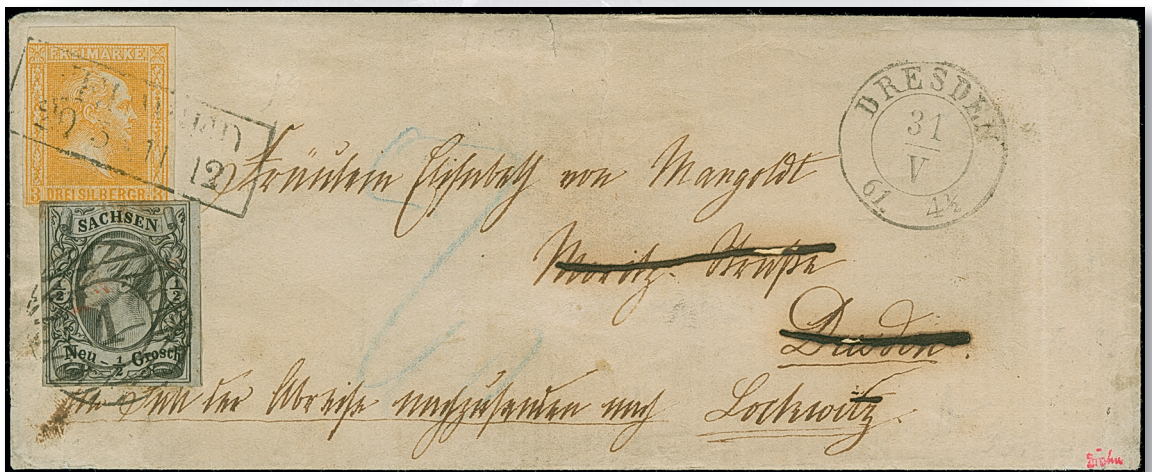 FREIMARKE
3 DREI SILBERGR. 3
30 5 11-12
SACHSEN
1/2 1/2
Neu- 1/2 Grosch
DRESDEN
31
V
61. 4½
Fräulein Elisabeth von Mangoldt
Moritz-Straße
Dresden.
Im Fall der Abreise nachzusenden nach Lockwitz.